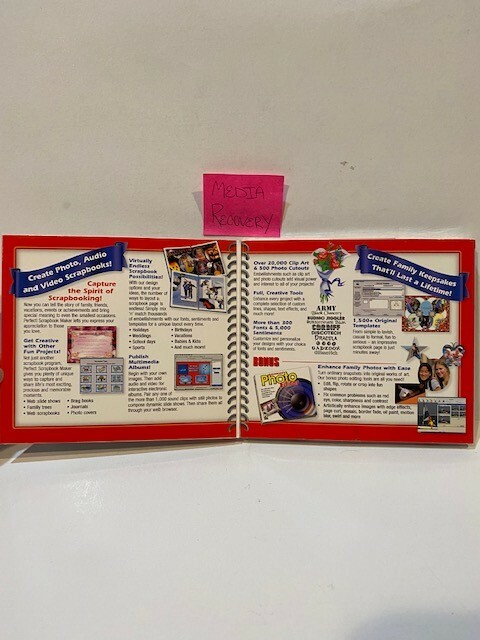 MEDIA
RECOVERY
Create Photo, Audio
and Video Scrapbooks!
Capture
the Spirit of
Scrapbooking!
Now you can tell the story of family, friends,
vacations, events or achievements and bring
special meaning to even the smallest occasions!
Perfect Scrapbook Maker lets you express your
appreciation to those
you love.
Get Creative
with Other
Fun Projects!
Not just another
scrapbook program,
Perfect Scrapbook Maker
gives you plenty of unique
ways to capture and
share life's most exciting,
precious and memorable
moments.
• Web slide shows
• Family trees
• Web scrapbooks
• Brag books
• Journals
• Photo covers
Virtually
Endless
Scrapbook
Possibilities!
With our design
options and your
ideas, the number of
ways to layout a
scrapbook page is
endless! Simply mix
'n' match thousands
of embellishments with our fonts, sentiments and
templates for a unique layout every time.
• Holidays
• Weddings
• School days
• Sports
• Birthdays
• Vacations
• Babies & Kids
• And much more!
Publish
Multimedia
Albums!
Begin with your own
images. Then add
audio and video for
interactive electronic
albums. Pair any one of
the more than 1,000 sound clips with still photos to
compose dynamic slide shows. Then share them all
through your web browser.
Over 20,000 Clip Art
& 500 Photo Cutouts
Embellishments such as clip art
and photo cutouts add visual power
and interest to all of your projects!
Full, Creative Tools
Enhance every project with a
complete selection of custom
lines, shapes, text effects, and
much more!
More than 200
Fonts & 5,000
Sentiments
Customize and personalize
your designs with your choice
of fonts and sentiments.
ARMY
CARDIFF
DISCOTECH
DRACULA
BONUS
Photo
Create Family Keepsakes
That'll Last a Lifetime!
1,500+ Original
Templates
From simple to formal,
casual to formal, fun to
serious – an impressive
scrapbook page is just
minutes away!
Enhance Family Photos with Ease
Turn ordinary snapshots into original works of art.
Our bonus photo editing tools are all you need!
• Edit, flip, rotate or crop site for
• Fix common problems such as red
eye, color, sharpness and contrast
• Artistically enhance images with edge effects,
page curl, mosaic, border fade, oil paint, motion
blur, swirl and more